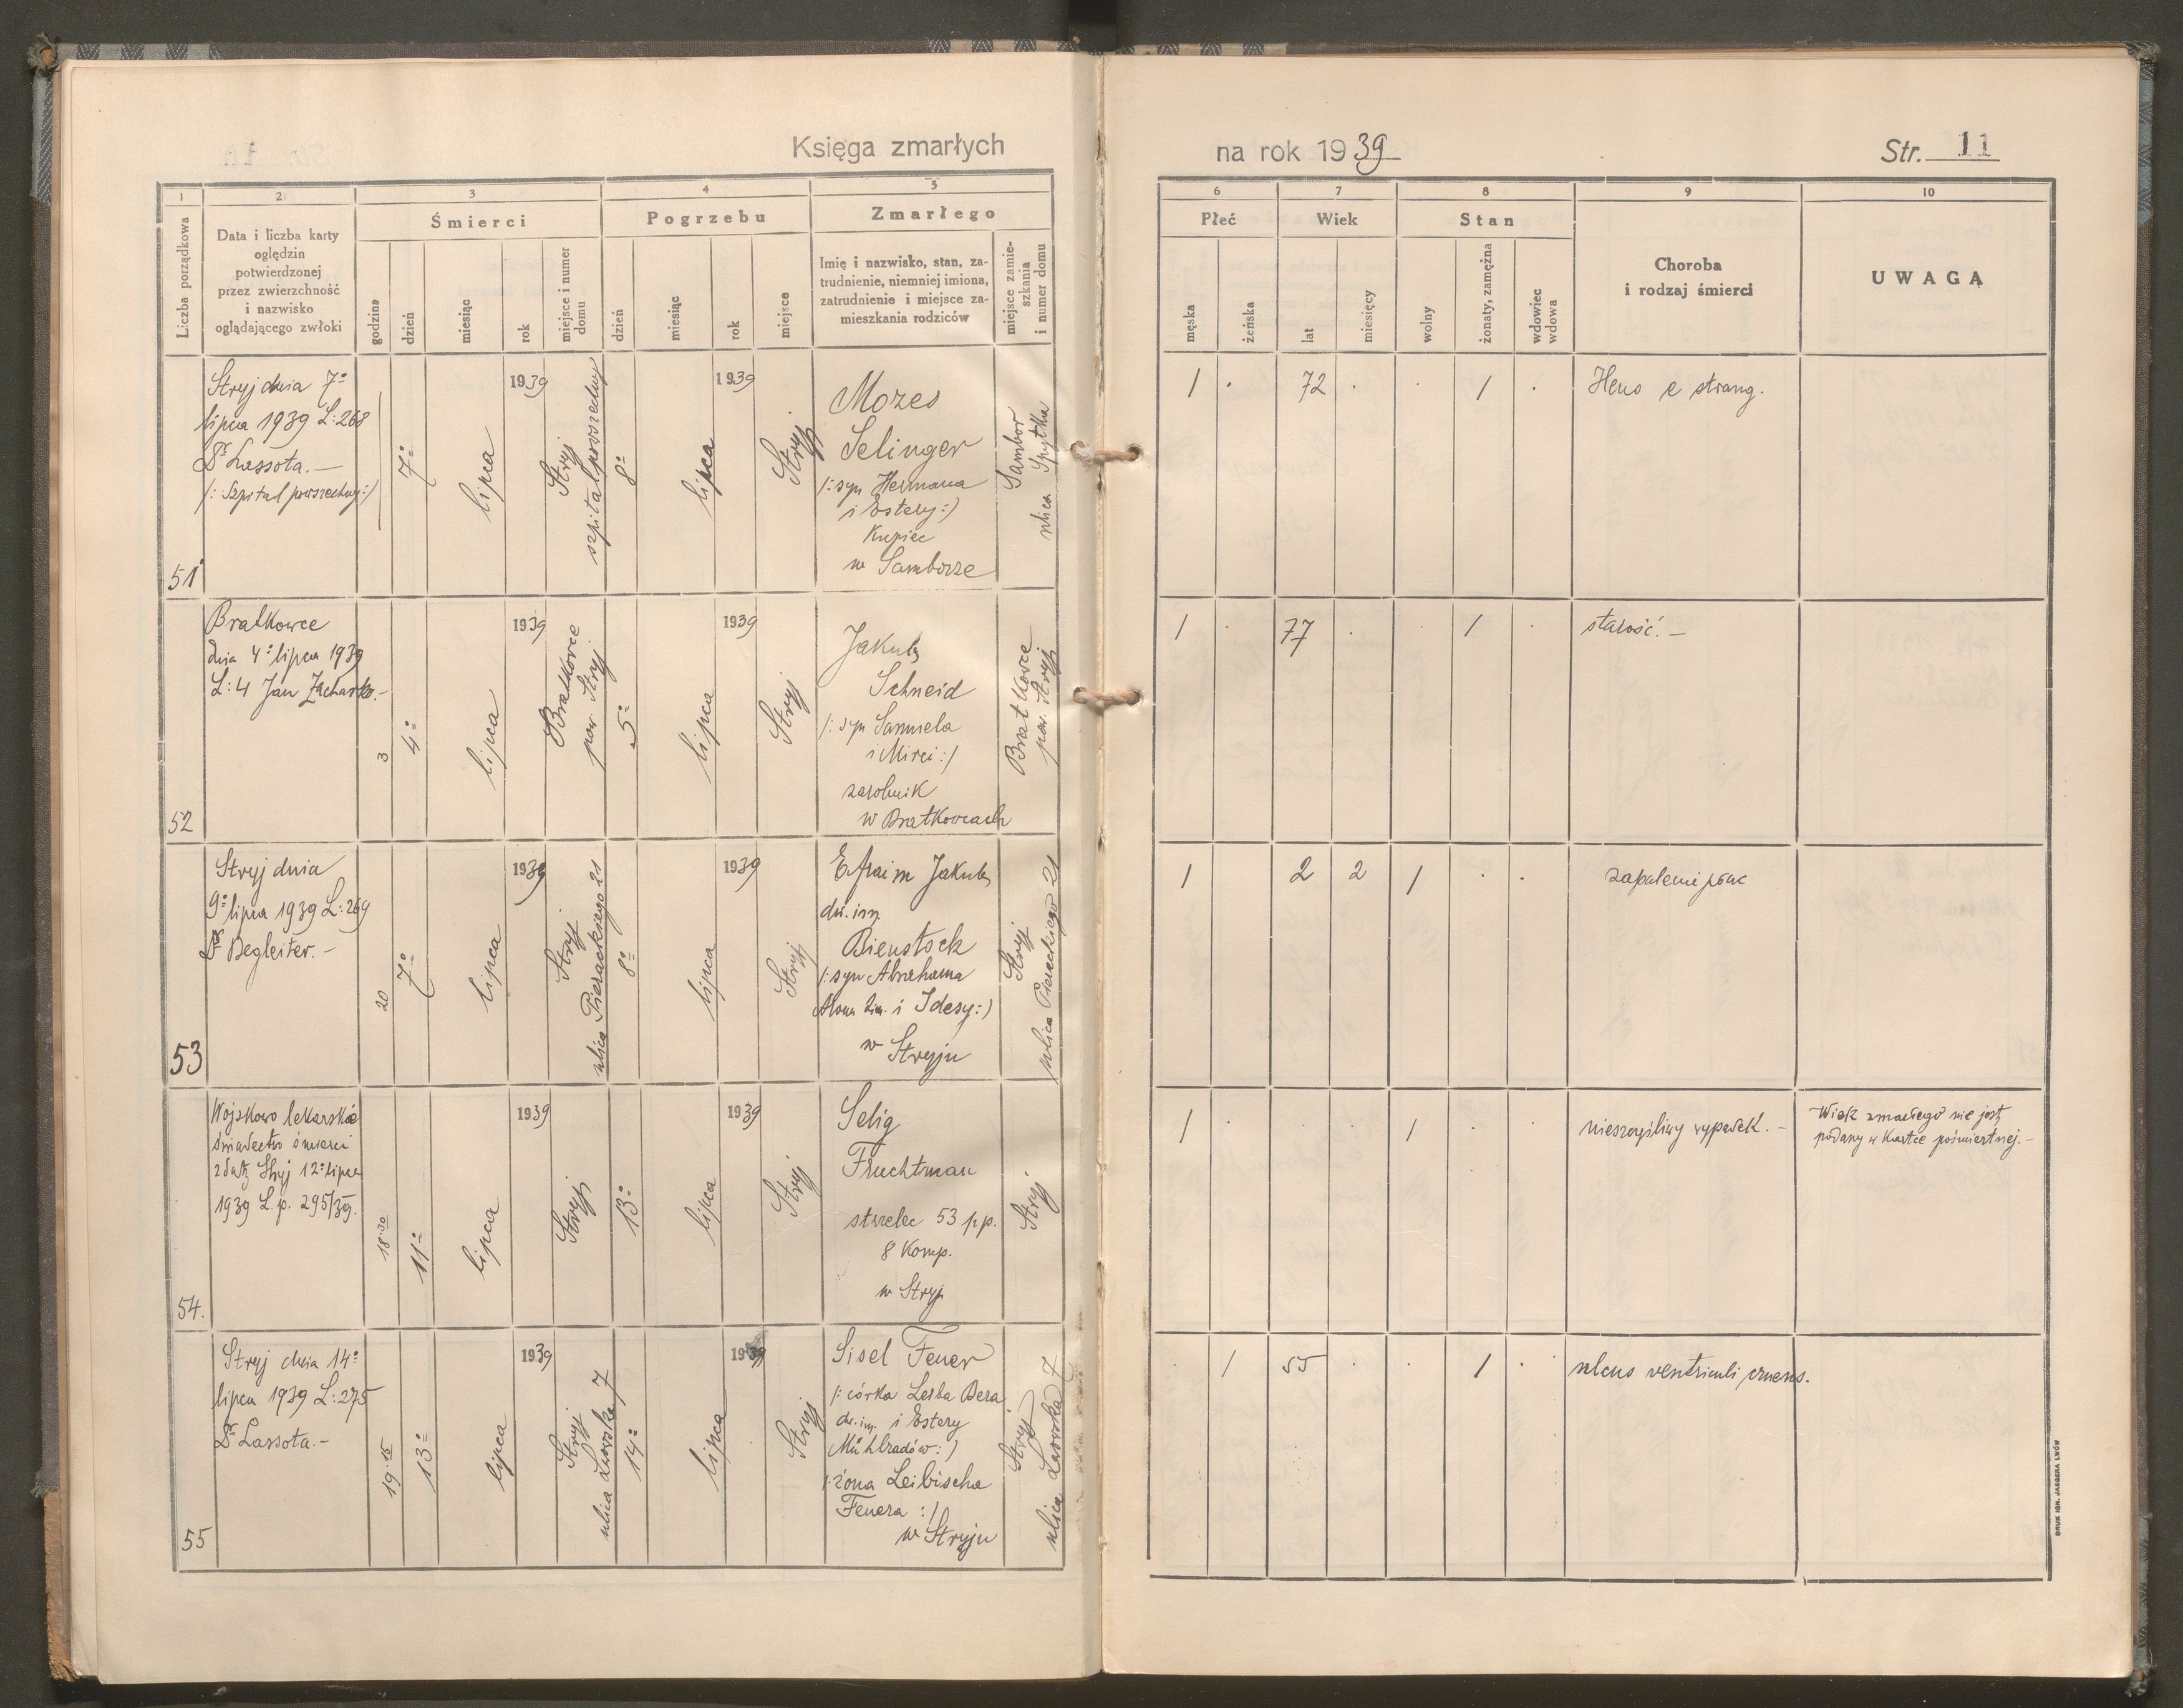 Księga zmarłych
na rok 1939
Str. 11
1
2
3
4
5
6
7
8
9
10
Liczba porządkowa
Data i liczba karty
oględzin
potwierdzonej
przez zwierzchność
i nazwisko
oglądającego zwłoki
Śmierci
godzina
dzień
miesiąc
rok
miejsce i numer
domu
Pogrzebu
dzień
miesiąc
rok
miejsce
Zmarłego
Imię i nazwisko, stan, za-
trudnienie, niemniej imiona,
zatrudnienie i miejsce za-
mieszkania rodziców
miejsce zamie-
szkania
i numer domu
Płeć
męska
żeńska
Wiek
lat
miesięcy
Stan
wolny
żonaty, zamężna
wdowiec
wdowa
Choroba
i rodzaj śmierci
UWAGĄ
51
Stryj dnia 7º
lipca 1939 L: 268
Dr Lassota.—
/: Szpital powszechny :/
7º
lipca
1939
Stryj
szpital powszechny
8º
lipca
1939
Stryj
Mozes
Selinger
/: syn Hermana
i Estery :/
Kupiec
w Samborze
Sambor
ulica Spytka
1 . 72 . . 1 .
strang.
52
Bratkowce
dnia 4º lipca 1939
L: 4 Jan Zacharko.-
3
4º
lipca
1939
Bratkowce
pow. Stryj
5º
lipca
1939
Stryj
Jakub
Schneid
/: syn Samuela
i Mirci :/
zarobnik
w Bratkowcach
Bratkowce
pow. Stryj
1 . 77 . . 1 .
starość.—
53
Stryj dnia
9º lipca 1939 L: 269
Dr Begleiter.—
20
7º
lipca
1939
Stryj
ulica Pierackiego 21
8º
lipca
1939
Stryj
Efraim Jakub
dw. im.
Bienstock
/: syn Abrahama
i Idesy :/
w Stryju
Stryj
ulica Pierackiego 21
1 2 2 1 . .
zapalenie płuc
54.
Wojskowo lekarskie
świadectwo śmierci
z datą Stryj 12º lipca
1939 L. p. 295/39.
18.30
11º
lipca
1939
Stryj
13º
lipca
1939
Stryj
Selig
Fruchtman
strzelec 53 pp.
8 Komp.
w Stryj
Stryj
1 . . . 1 . .
nieszczęśliwy wypadek.—
Wiek zmarłego nie jest
podany w Kartce pośmiertnej.—
55
Stryj dnia 14º
lipca 1939 L: 275
Dr Lassota.—
19.15
13º
lipca
1939
Stryj
ulica Lwowska 7
14º
lipca
1939
Stryj
Sisel Feuer
/: córka Leiba Bera
dw. im. i Estery
Mühlradów :/
/: żona Leibischa
Feuera :/
w Stryju
Stryj
ulica Lwowska 7
. 1 55 . . 1 .
ulcus ventriculi cruens.
DRUK IGN. JAEGERA LWÓW